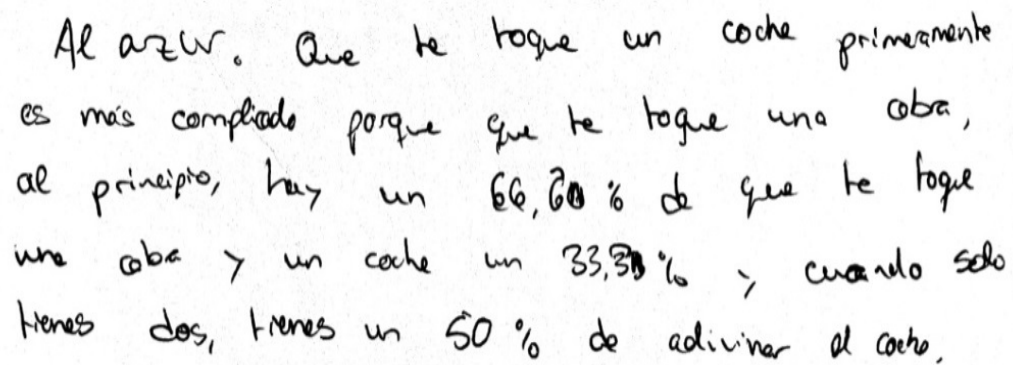 Al azur. Que te toque un coche primeramente
es más compliado porque que te toque una cabra,
al principio, hay un 66,60 % de que te toque
una cabra y un coche un 33,30 % y cuando solo
tienes dos, tienes un 50 % de adivinar el coche.